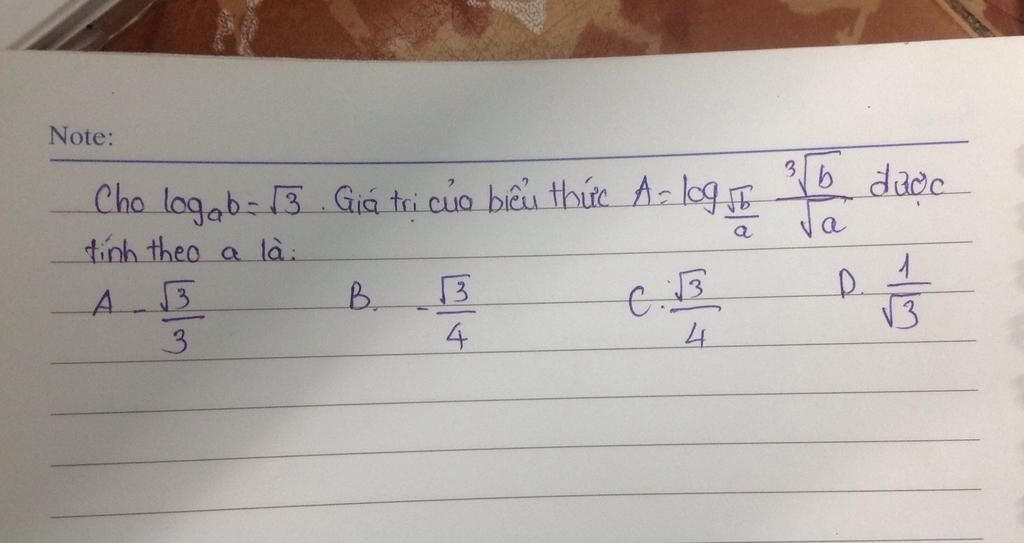 Note:
Cho logₐb = √3 . Giá trị của biểu thức A = log_{√b/a} ∛b/√a được
tính theo a là:
A - √3/3 B. - √3/4 C. √3/4 D. 1/√3